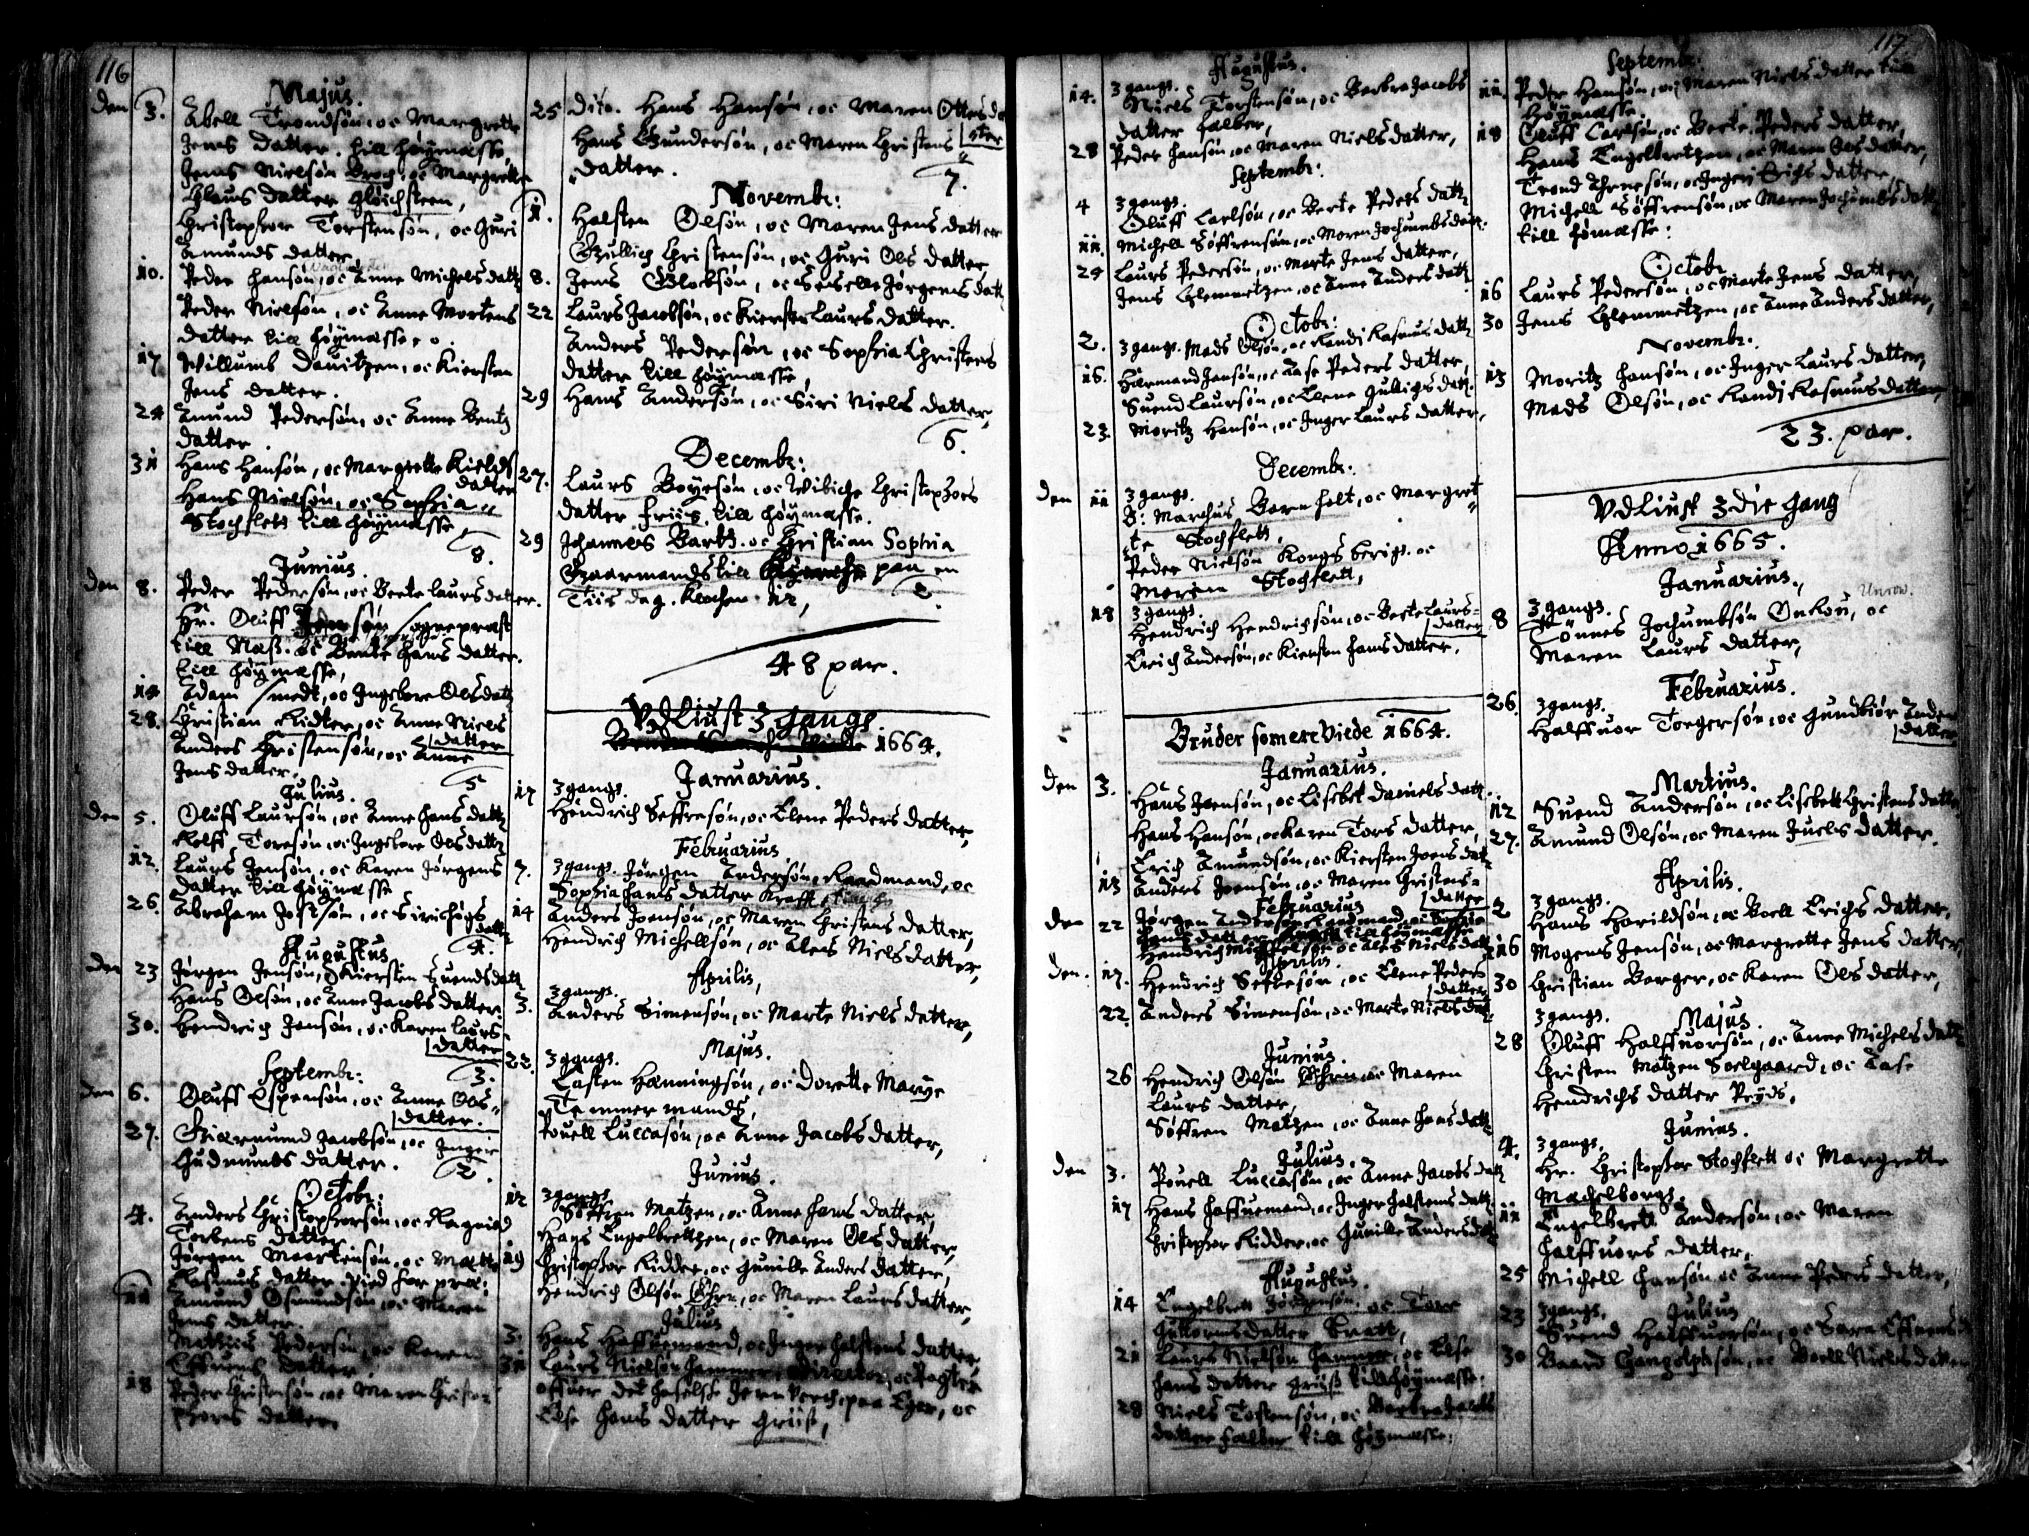 116
Majus.
Den 3. Abell Trondsøn, oc Margrette
Jens datter. till høymæsse,
Jens Nielsøn Broch, oc Margrette
Claus datter
Christopher Torstensøn, oc Guri
Amunds datter,
10. Peder Hansøn, oc Anne Michels datt.
Peder Nielsøn, oc Anne Mortens
datter till høymæsse.
17 Willumb Danitzen, oc Kiersten
Jens datter.
24 Amund Pedersøn, oc Anne Bentz
datter.
31 Hans Hansøn, oc Margrette Kields
datter
Hans Nielsøn, oc Sophia
Stochflett till høymæsse,
8.
Junius.
Den 8. Peder Pedersøn, oc Berte Laurs datter.
Hr. Oluff Jensøn Sogneprest
till Næss. oc Bente Hans datter.
till høymæsse,
14 Adam Smedt, oc Ingebore Ols datt.
28. Christian Ridter, oc Anne Niels
datter
Anders Christensøn, oc Anne
Jens datter.
5
Julius.
Den 5. Oluff Laursøn, oc Anne Hans datt.
Rolff Toresøn, oc Ingebore Ols datt.
12. Laurs Jensøn, oc Karen Jørgens
datter till høymæsse
26. Abraham Jostsøn, oc Siri
datt.
4.
Augustus
Den 23 Jørgen Jensøn, oc Kiersten Suends datt.
Hans Olsøn, oc Anne Jacobs datter.
30. Hendrich Jensøn, oc Karen Laurs
datter
3.
Septembr:
Den 6. Oluff Espensøn, oc Anne Ols
datter.
27. Jacobsøn, oc Inger
Gudmunds datter.
2.
Octobr:
4. Anders Christophersøn, oc Ragnild
Torbens datter
Jørgen Maartensøn, oc Mætte
Rasmus datter
11 Amund Osmundsøn, oc Maren
Jens datter.
Mathias Pedersøn, oc Karen
datter
18 Peder Christensøn, oc Maren Christo-
phers datter.
25 Dito. Hans Hansøn, oc Maren Ottes da
tter
Hans Gundersøn, oc Maren Christens
datter.
7.
Novembr:
1. Halsten Olsøn, oc Maren Jens datter
Gullich Christensøn, oc Guri Ols datter
8. Jens Olsøn, oc Jørgens datt.
22 Laurs Jacobsøn, oc Kiersten Laurs datter.
Anders Pedersøn, oc Sophia Christens
datter till høymæsse
29 Hans Andersøn, oc Siri Niels datter,
6.
Decembr:
27. Laurs Boyesøn, oc Wibiche Christophers
datter Friis, till høymæsse.
29 Johannes Bartz. oc Christian Sophia
Gaarmands till paa en
Tiisdag. Klochen 12,
2.
48 par.
Vdliust 3 gange
1664.
Januarius.
17 3 gangs.
Hendrich Seffrensøn, oc Elene Peders datter,
Februarius
7. 3 gangs. Jørgen Andersøn, Raadmand, oc
Sophia Hans datter Krafft
14 Anders Joensøn, oc Maren Christens datter,
Hendrich Michellsøn, oc Aleus Niels datter,
Aprilis,
3. 3 gangs.
Anders Simensøn, oc Marte Niels datter,
Majus.
22. 3 gangs.
Casten Hanningsøn, oc Dorette Marije
Temmermands,
Pouell Luccasøn, oc Anne Jacobs datter,
Junius.
12 3 gangs.
Søffren Matzen, oc Anne Hans datter,
Hans Engelbrettzen, oc Maren Ols datter,
19 Christopher Ridder, oc Gunille Anders datter,
Hendrich Olsøn Ehrn, oc Maren Laurs datter,
Julius
3. Hans Haffuemand, oc Inger Halstens datter,
31 Laurs Nielsøn Hammer, Director, oc Pagter
offuer det Hasselske Jernverch, paa Eger, oc
Else Hans datter Griis,
117.
Augustus.
14. 3 gangs.
Niels Torstensøn, oc Barbra Jacobs
datter Falber,
28 Peder Hansøn, oc Maren Niels datter,
Septembr:
4 3 gangs.
Oluff Carlsøn, oc Berte Peders datt.
11. Michell Søffrensøn, oc Maren Jochumbs datt.
25 Laurs Pedersøn, oc Marte Jens datter,
Jens Clemmetzen, oc Anne Anders datt.
Octobr:
2. 3 gangs. Mads Olsøn, oc Randi Rasmus datt.
16. Harmand Jensøn, oc Aase Peders datter,
Suend Laursøn, oc Elene Gullichs datt.
23. Moritz Hansøn, oc Inger Laurs datter,
Decembr:
Den 11 3 gangs.
B: Marchus Barnholt, oc Margret
te Stochflett,
Peder Nielsøn Kongsberig. oc
Maren Stochflett,
18 3 gangs.
Hendrich Hendrichsøn, oc Berte Laurs-
datter
Erich Andersøn, oc Kiersten Hans datter.
Bruder som ere Viede 1664.
Januarius.
Den 3. Hans Jensøn, oc Lisebet Daniels datt.
Hans Hansøn, oc Karen Tors datter,
Erich Amundsøn, oc Kiersten Joens datt.
13 Anders Joensøn, oc Maren Christens-
datter
Februarius
Den 22 Jørgen Andersøn Raadmand, oc Sophia
Hans datter Krafft till høymæsse
Hendrich Michelsøn, oc Aleus Niels datt.
Aprilis.
Den. 17. Hendrich Seffresøn, oc Elene Peders
datter
22. Anders Simensøn, oc Marte Niels datt.
Junius.
26 Hendrich Olsøn Ehrn, oc Maren
Laurs datter,
Søffren Matzen, oc Anne Hans datt.
Julius.
Den 3. Pouell Luccasøn, oc Anne Jacobs datt.
17 Hans Haffuemand, oc Inger Halstens datt.
Christopher Ridder, oc Gunille Anders datt.
Augustus.
14 Engelbrett Jørgensøn, oc Tore
Guttorms datter Bratt,
21 Laurs Nielsøn Hammer, oc Else
Hans datter Griis till høymæsse.
28 Niels Torstensøn, oc Barbra Jacobs
datter Falber till høymæsse.
Septembr:
11. Peder Hansøn, oc Maren Niels datter till
Høymæsse.
18 Oluff Carlsøn, oc Berte Peders datter,
Hans Engelbretzen, oc Maren Ols datter,
Trond Arnesøn, oc Inger Erichs datter,
Michell Søffrensøn, oc Maren Jochumbs datt.
till Høimæsse:
Octobr.
16 Laurs Pedersøn, oc Marte Jens datter,
30 Jens Clemmetzen, oc Anne Anders datter,
Novembr:
13 Moritz Hansøn, oc Inger Laurs datter,
Mads Olsøn, oc Randi Rasmus datter,
23. par.
Vdliust 3 die Gang
Anno 1665.
Januarius.
8 3 gangs.
Tønnes Jochumbsøn Onkou, oc
Maren Laurs datter,
Februarius.
26. 3 gangs.
Halffuor Torgersøn, oc Gundbiør Anders
datter,
Martius.
12 Suend Andersøn, oc Lisebett Christens datter
27. Amund Olsøn, oc Maren Juels datter.
Aprilis.
2 3 gangs.
Hans Harildsøn, oc Boell Erichs datter,
16 Mogens Jensøn, oc Margrette Jens datter,
30 Christian Borger, oc Karen Ols datter,
3 gangs. Majus
28 Oluff Halffuorsøn, oc Anne Michels datt.
Christen Matzen Soelgaard, oc Aase
Hendrichs datter Reyds,
4. 3 gangs. Junius.
Hr. Christopher Stochflett oc Margrette
Machelborgs.
11 Engelbrett Andersøn, oc Maren
Halffuors datter,
25 Michell Hansøn oc Anne Peders datter,
23 3 gangs. Julius
Suend Halffuorsøn, oc Sara
30 Baard Gangolphsøn, oc Boell Niels datter